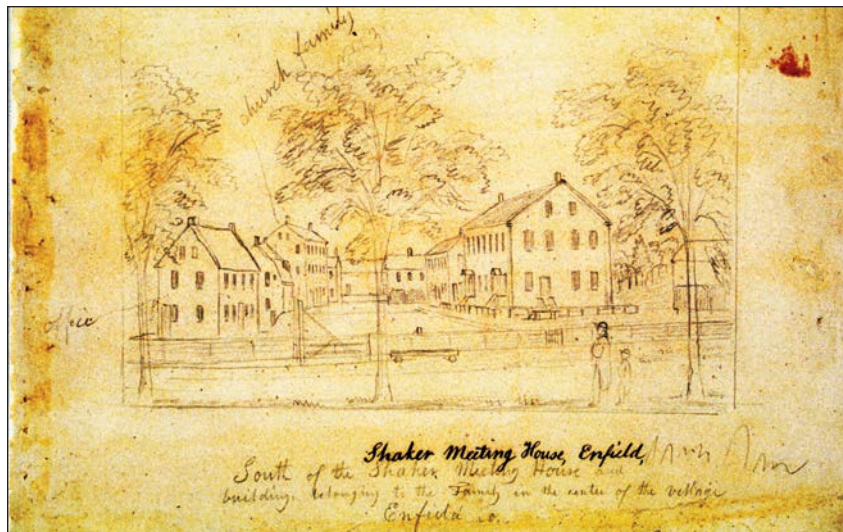 church family
office
Shaker Meeting House, Enfield,
South of the Shaker Meeting House and
buildings belonging to the Family in the center of the village
Enfield